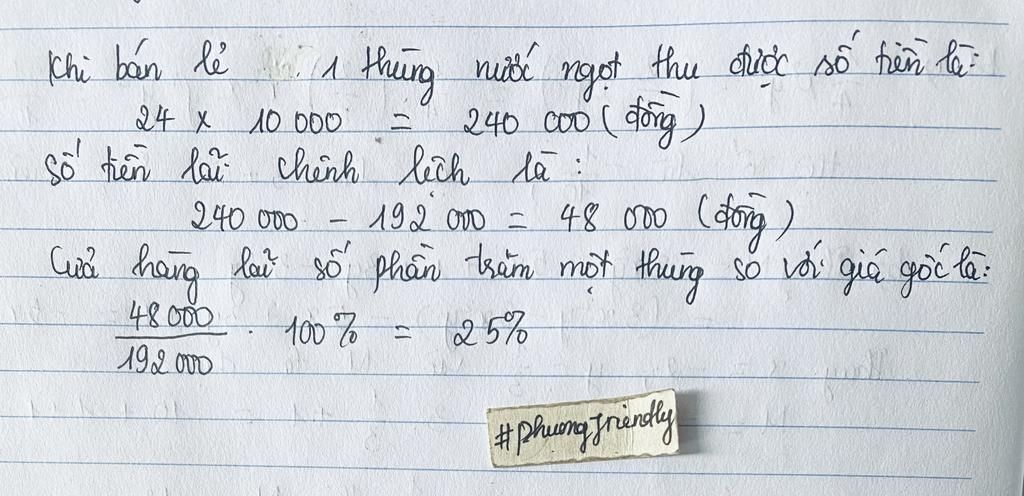 Khi bán lẻ 1 thùng nước ngọt thu được số tiền là:
24 x 10 000 = 240 000 (đồng)
Số tiền lãi chênh lệch là:
240 000 - 192 000 = 48 000 (đồng)
Cửa hàng lãi số phần trăm một thùng so với giá gốc là:
48 000 / 192 000 . 100% = 25%
#phuongfriendly